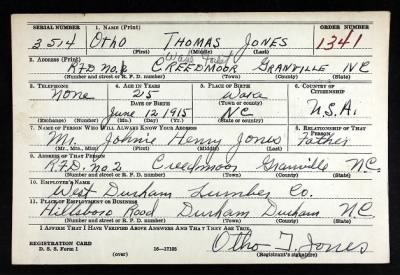 SERIAL NUMBER 1. NAME (Print) ORDER NUMBER
3514 Otho THOMAS JONES 1341
(First) (Middle) (Last)
2. ADDRESS (Print)
R.F.D. No. 2 CREEDMOOR GRANVILLE NC
(Number and street or R. F. D. number) (Town) (County) (State)
3. TELEPHONE 4. AGE IN YEARS 5. PLACE OF BIRTH 6. COUNTRY OF CITIZENSHIP
None 25 Wake
DATE OF BIRTH (Town or county)
June 12 1915 NC U.S.A.
(Exchange) (Number) (Mo.) (Day) (Yr.) (State or country)
7. NAME OF PERSON WHO WILL ALWAYS KNOW YOUR ADDRESS 8. RELATIONSHIP OF THAT PERSON
Mr. Johnie Henry Jones Father
(Mr., Mrs., Miss) (First) (Middle) (Last)
9. ADDRESS OF THAT PERSON
R.F.D. no. 2 Creedmoor Granville N.C.
(Number and street or R. F. D. number) (Town) (County) (State)
10. EMPLOYER'S NAME
West Durham Lumber Co.
11. PLACE OF EMPLOYMENT OR BUSINESS
Hillsboro Road Durham Durham N.C.
(Number and street or R. F. D. number) (Town) (County) (State)
I AFFIRM THAT I HAVE VERIFIED ABOVE ANSWERS AND THAT THEY ARE TRUE.
REGISTRATION CARD
D. S. S. Form 1 16—17105 Otho T. Jones
(over) (Registrant's signature)